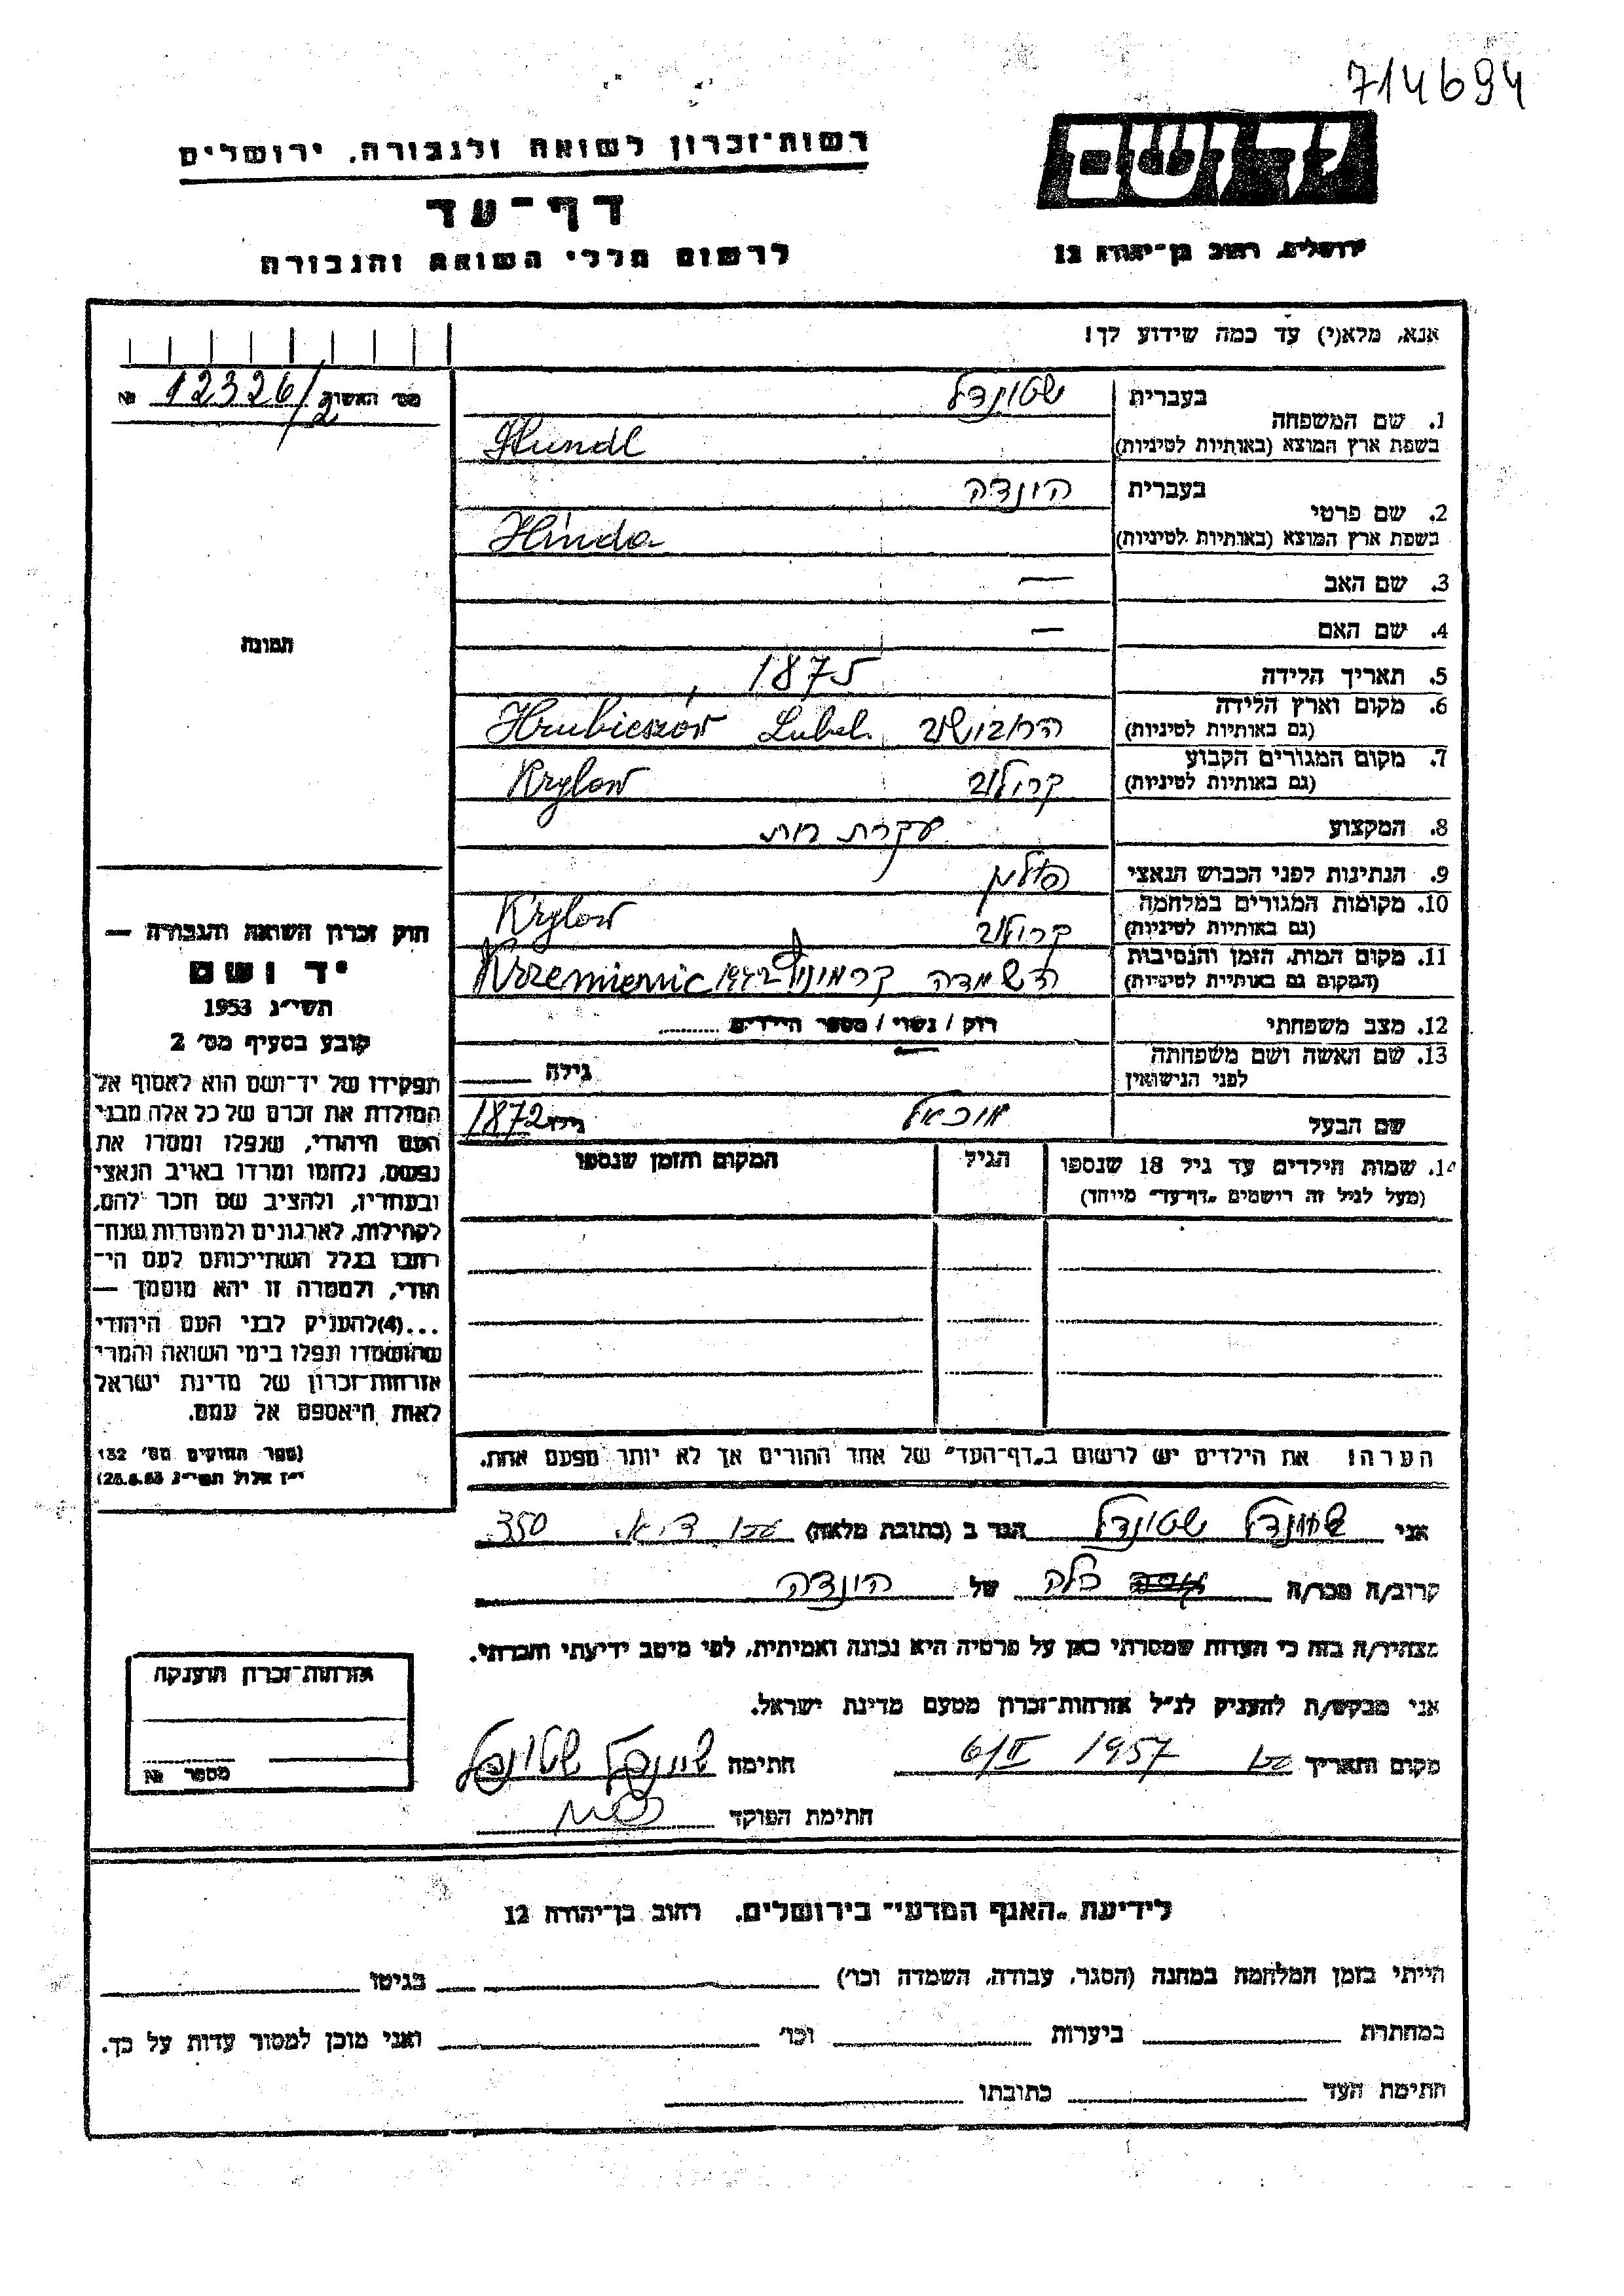 714694
רשות־זכרון לשואה ולגבורה, ירושלים
יד ושם
דף־עד
לרשום חללי השואה והגבורה
ירושלים, רחוב בן־יהודה 12
אנא, מלא(י) עד כמה שידוע לך!
מס׳ האשור 12326/2 №
תמונה
בעברית שטונדל
1. שם המשפחה
בשפת ארץ המוצא (באותיות לטיניות) Sztundl
בעברית הינדה
2. שם פרטי
בשפת ארץ המוצא (באותיות לטיניות) Hinda
3. שם האב —
4. שם האם —
5. תאריך הלידה 1875
6. מקום וארץ הלידה
(גם באותיות לטיניות) הרובישוב Hrubieszów Lubel.
7. מקום המגורים הקבוע
(גם באותיות לטיניות) קרילוב Krylow
8. המקצוע עקרת בית
9. הנתינות לפני הכבוש הנאצי פולין
10. מקומות המגורים במלחמה
(גם באותיות לטיניות) קרילוב Krylow
11. מקום המות, הזמן והנסיבות
(המקום גם באותיות לטיניות) השמדה 1942 Krzemieniec
12. מצב משפחתי רווק / נשוי / מספר הילדים
13. שם האשה ושם משפחתה
לפני הנישואין גילה
שם הבעל מיכאל גילו 1872
14. שמות הילדים עד גיל 18 שנספו
(מעל לגיל זה רושמים „דף־עד״ מיוחד)
הגיל
המקום והזמן שנספו
הערה! את הילדים יש לרשום ב„דף־העד״ של אחד ההורים אך לא יותר מפעם אחת.
חוק זכרון השואה והגבורה —
יד ושם
תשי״ג 1953
קובע בסעיף מס׳ 2
תפקידו של יד־ושם הוא לאסוף אל
המולדת את זכרם של כל אלה מבני
העם היהודי, שנפלו ומסרו את
נפשם, נלחמו ומרדו באויב הנאצי
ובעוזריו, ולהציב שם וזכר להם,
לקהילות, לארגונים ולמוסדות שנח־
רבו בגלל השתייכותם לעם הי־
הודי, ולמטרה זו יהא מוסמך —
...(4)להעניק לבני העם היהודי
שהושמדו ונפלו בימי השואה והמרי
אזרחות־זכרון של מדינת ישראל
לאות היאספם אל עמם.
(ספר החוקים מס׳ 132
י״ז אלול תשי״ג 28.8.53)
אני שטונדל הגר ב (כתובת מלאה) 350
קרוב/ה מכר/ה כלה של הינדה
מצהיר/ה בזה כי העדות שמסרתי כאן על פרטיה היא נכונה ואמיתית, לפי מיטב ידיעתי והכרתי.
אני מבקש/ת להעניק לנ״ל אזרחות־זכרון מטעם מדינת ישראל.
מקום ותאריך 6/II 1957 חתימה שטונדל
חתימת הפוקד
אזרחות־זכרון הוענקה
מספר №
לידיעת „האגף המדעי״ בירושלים, רחוב בן־יהודה 12
הייתי בזמן המלחמה במחנה (הסגר, עבודה, השמדה וכו׳) בגיטו
במחתרת ביערות וכו׳ ואני מוכן למסור עדות על כך.
חתימת העד כתובתו